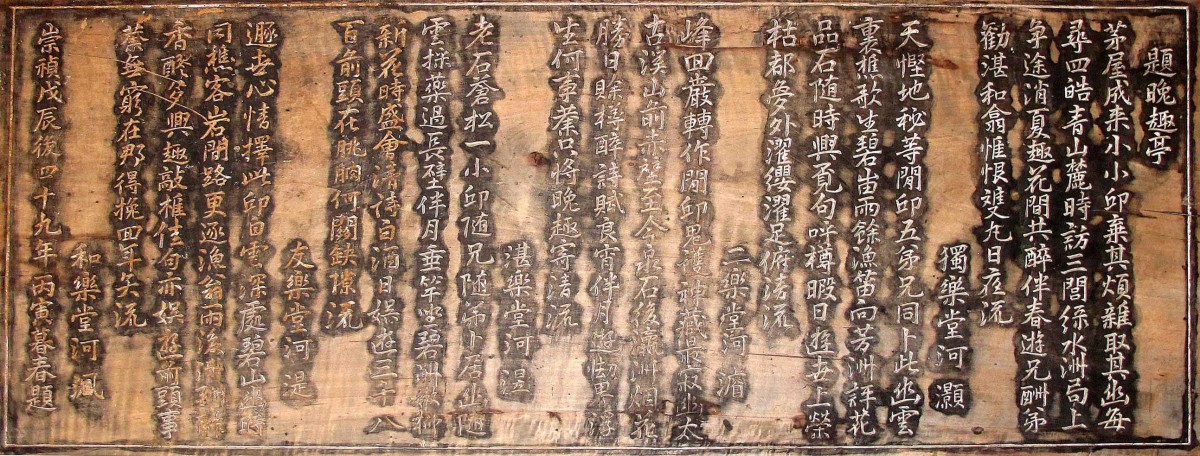 題晩趣亭
茅屋成来小小卬棄其煩雜取其幽每
尋四皓青山麓時訪三閭綠水洲局上
争途消夏趣花間共醉伴春遊兄酬弟
勸湛和翕惟恨雙丸日夜流
獨樂堂河灝
天慳地秘等閒卬五弟兄同卜此幽雲
裏樵歌生碧出雨餘漁笛向芳洲評花
品石随時興覓句呼樽暇日遊世上榮
枯都夢外濯纓濯足俯清流
二樂堂河湄
峰回巖轉作閒卬鬼護神藏最寂幽太
古溪山前赤壁至今泉石後瀛洲烟花
勝日賖樽醉詩賦良宵伴月遊浮
生何事業只將晚趣寄清流
湛樂堂河
老石蒼松一小卬随兄随弟卜居幽随
雲採藥過長壁伴月垂竿坐碧洲嫩柳
新花時盛會清白酒日娛遊三千八
百前頭在胸何關隙流
友樂堂河湜
遯世心情擇此卬白雲深處碧山幽時
同樵客岩間路更逐漁翁雨後洲
香醪多興趣敲椎佳句亦娱遊前頭事
業無窮在那得挽回年矢流
和樂堂河渢
崇禎戊辰後四十九年丙寅暮春題